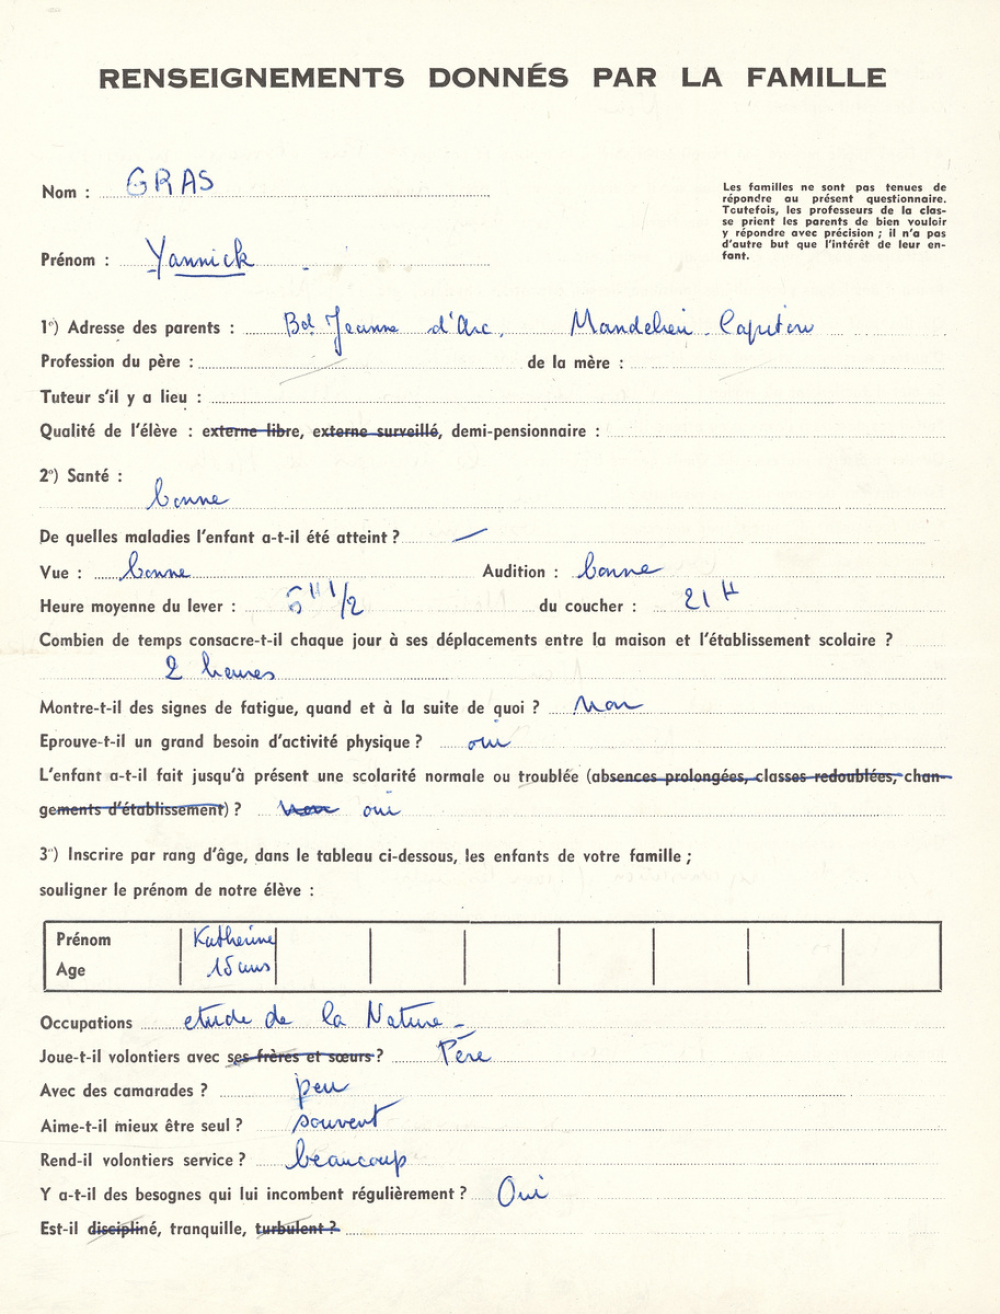 RENSEIGNEMENTS DONNÉS PAR LA FAMILLE
Nom : GRAS
Les familles ne sont pas tenues de
répondre au présent questionnaire.
Toutefois, les professeurs de la clas-
se prient les parents de bien vouloir
y répondre avec précision ; il n'a pas
d'autre but que l'intérêt de leur en-
fant.
Prénom : Yannick
1°) Adresse des parents : Bd Jeanne d'Arc, Mandelieu - Capitou
Profession du père : de la mère :
Tuteur s'il y a lieu :
Qualité de l'élève : externe libre, externe surveillé, demi-pensionnaire :
2°) Santé :
bonne
De quelles maladies l'enfant a-t-il été atteint ? —
Vue : bonne Audition : bonne
Heure moyenne du lever : 1/2 du coucher : 21 H
Combien de temps consacre-t-il chaque jour à ses déplacements entre la maison et l'établissement scolaire ?
2 heures
Montre-t-il des signes de fatigue, quand et à la suite de quoi ? non
Eprouve-t-il un grand besoin d'activité physique ? oui
L'enfant a-t-il fait jusqu'à présent une scolarité normale ou troublée (absences prolongées, classes redoublées, chan-
gements d'établissement) ? non oui
3°) Inscrire par rang d'âge, dans le tableau ci-dessous, les enfants de votre famille ;
souligner le prénom de notre élève :
Prénom Katherine
Age 15 ans
Occupations etude de la Nature -
Joue-t-il volontiers avec ses frères et sœurs ? Père
Avec des camarades ? peu
Aime-t-il mieux être seul ? souvent
Rend-il volontiers service ? beaucoup
Y a-t-il des besognes qui lui incombent régulièrement ? Oui
Est-il discipliné, tranquille, turbulent ?